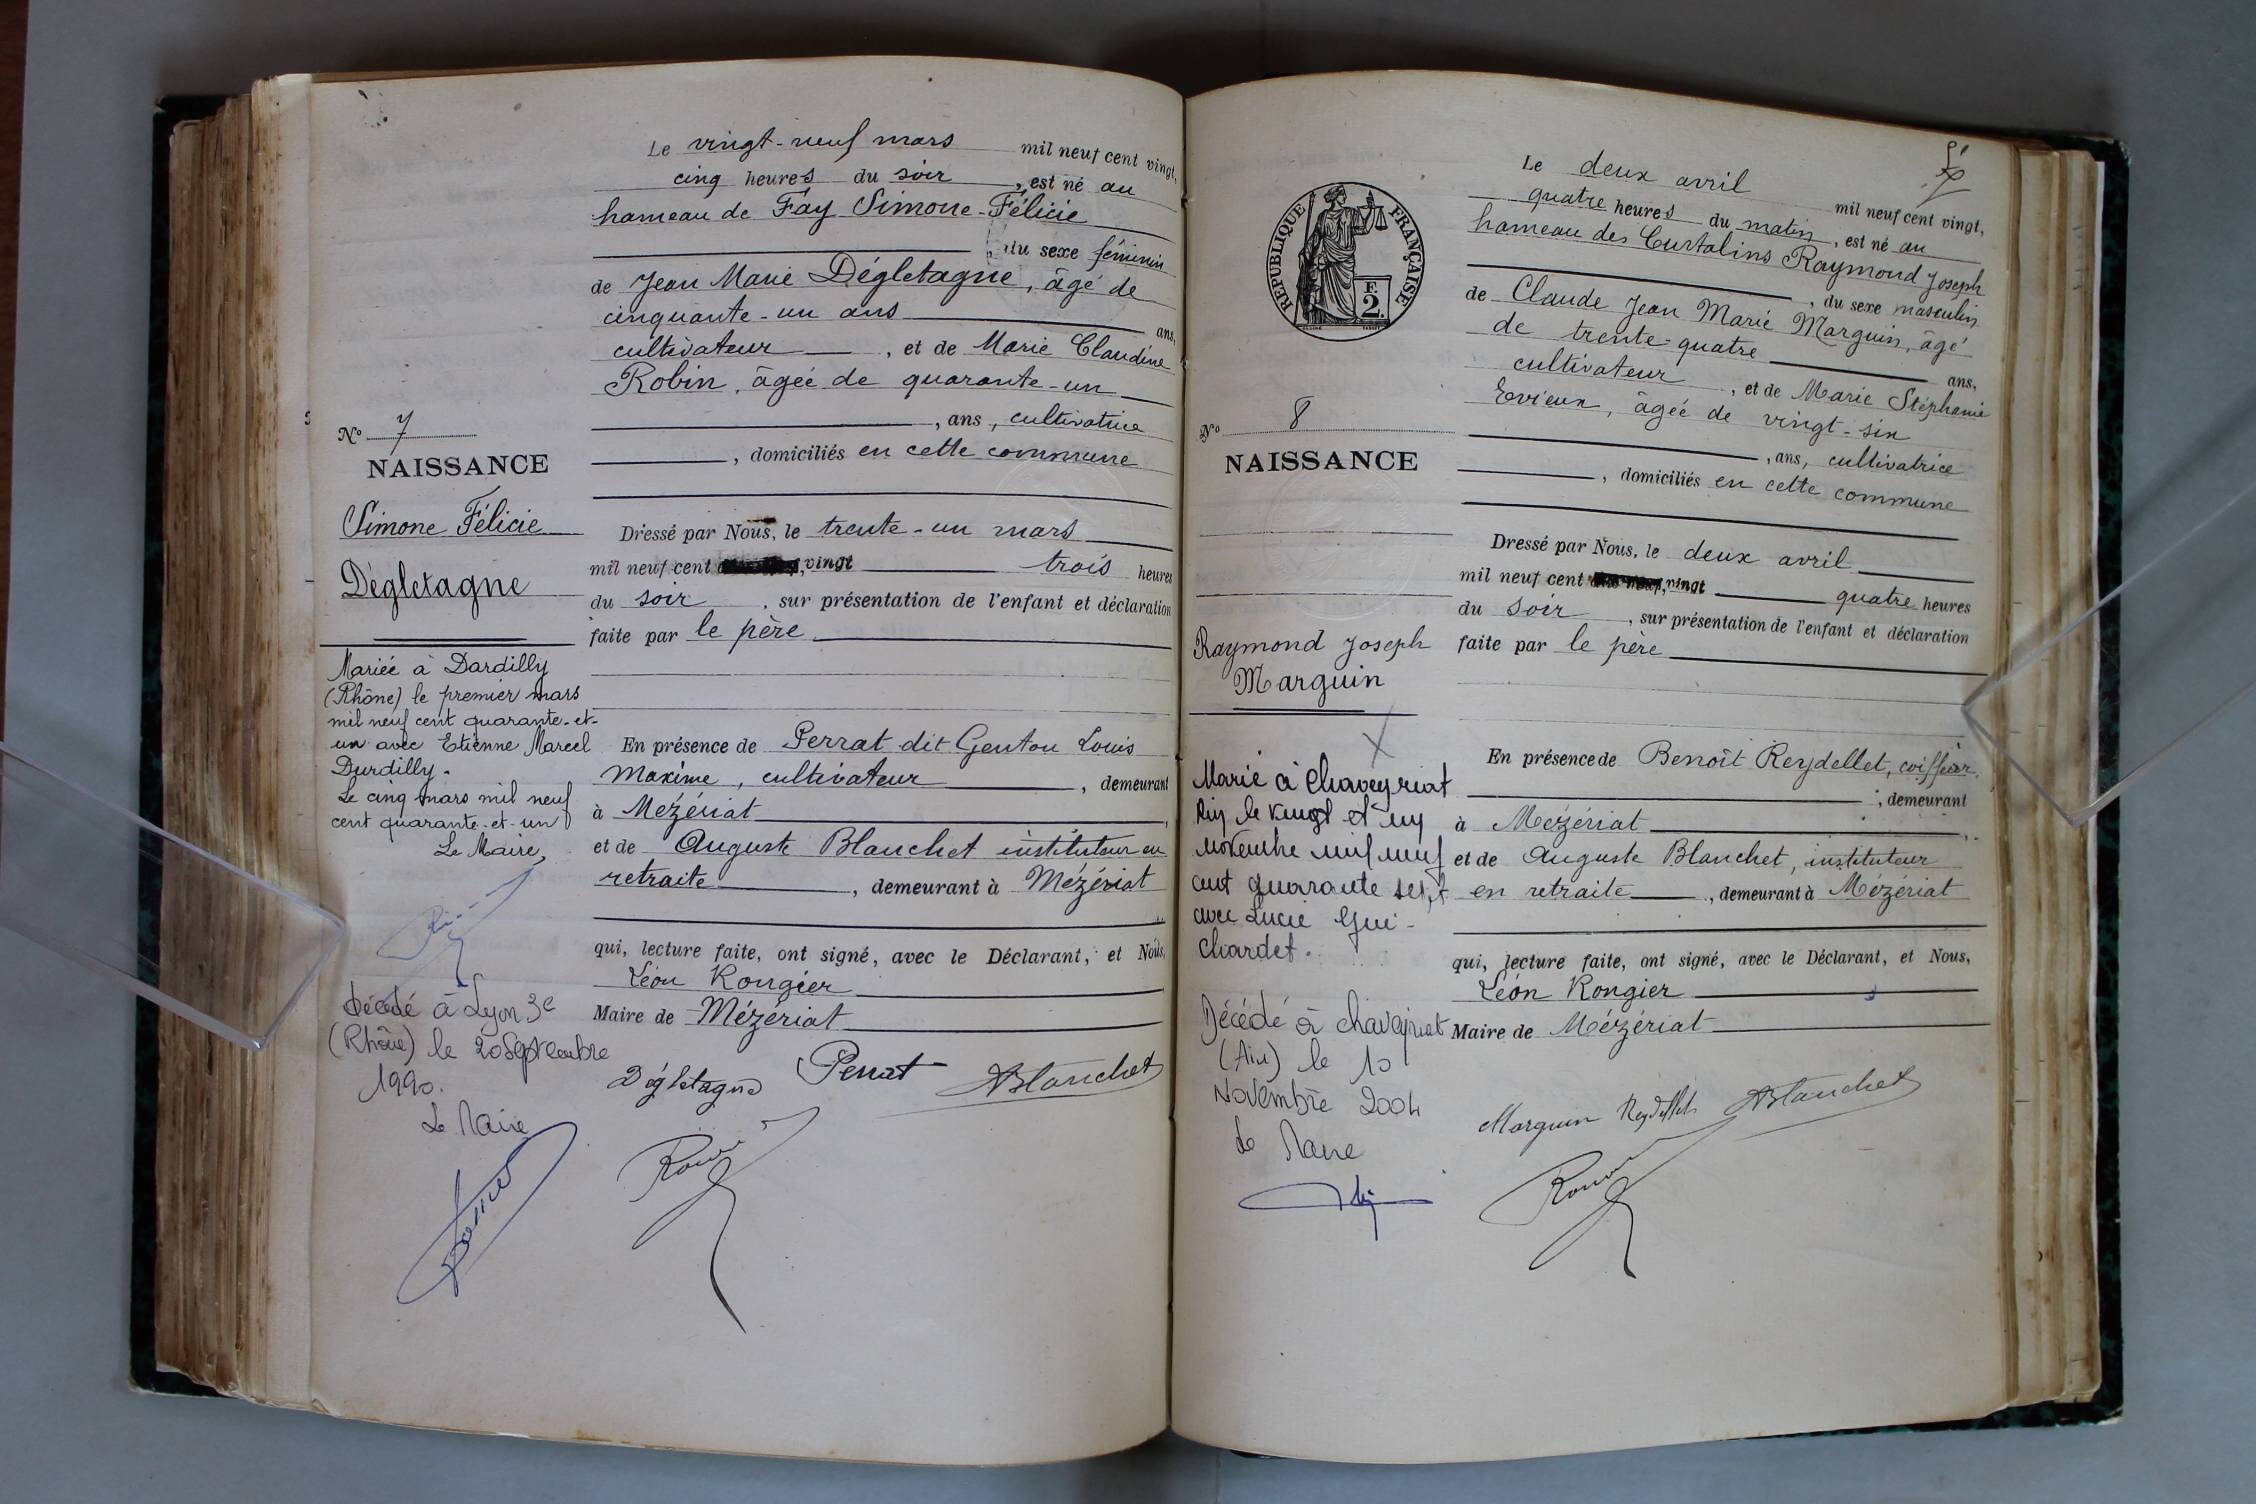 Le vingt-neuf mars mil neuf cent vingt,
cinq heures du soir, est né au
hameau de Fay Simone-Félicie
du sexe féminin
de Jean Marie Dégletagne, âgé de
cinquante-un ans ans,
cultivateur, et de Marie Claudine
Robin, âgée de quarante-un
, ans, cultivatrice
, domiciliés en cette commune
Dressé par Nous, le trente-un mars
mil neuf cent vingt trois heures
du soir, sur présentation de l'enfant et déclaration
faite par le père
En présence de Perrat dit Genton Louis
Maxime, cultivateur, demeurant
à Mézériat,
et de Auguste Blanchet instituteur en
retraite, demeurant à Mézériat
qui, lecture faite, ont signé, avec le Déclarant, et Nous,
Léon Rongier
Maire de Mézériat
Dégletagne Perrat ABlanchet
No 7
NAISSANCE
Simone Félicie
Dégletagne
Mariée à Dardilly
(Rhône) le premier mars
mil neuf cent quarante-et-
un avec Etienne Marcel
Durdilly.
Le cinq mars mil neuf
cent quarante-et-un
Le Maire,
Décédé à Lyon 3e
(Rhône) le 20 Septembre
1990.
Le Maire
Le deux avril mil neuf cent vingt,
quatre heures du matin, est né au
hameau des Curtalins Raymond Joseph
, du sexe masculin
de Claude Jean Marie Marguin, âgé
de trente-quatre ans,
cultivateur, et de Marie Stéphanie
Evieux, âgée de vingt-six
, ans, cultivatrice
, domiciliés en cette commune
Dressé par Nous, le deux avril
mil neuf cent vingt quatre heures
du soir, sur présentation de l'enfant et déclaration
faite par le père
En présence de Benoît Reydellet, coiffeur,
, demeurant
à Mézériat,
et de Auguste Blanchet, instituteur
en retraite, demeurant à Mézériat
qui, lecture faite, ont signé, avec le Déclarant, et Nous,
Léon Rongier
Maire de Mézériat
Marguin Reydellet ABlanchet
RÉPUBLIQUE FRANÇAISE
F.
2.
No 8
NAISSANCE
Raymond Joseph
Marguin
Marié à Chaveyriat
Ain le vingt et un
novembre mil neuf
cent quarante sept
avec Lucie Gui-
chardet.
Décédé à Chaveyriat
(Ain) le 10
Novembre 2004
Le Maire